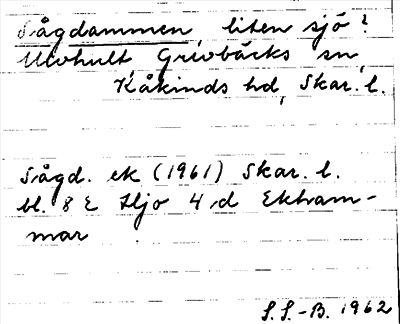 Sågdammen, liten sjö?
Ulvhult Grevbäcks sn,
Kåkinds hd, Skar. l.
Sågd. ek (1961) Skar. l.
bl. 8 E Hjo 4 d Ekham-
mar
S. S.-B. 1962